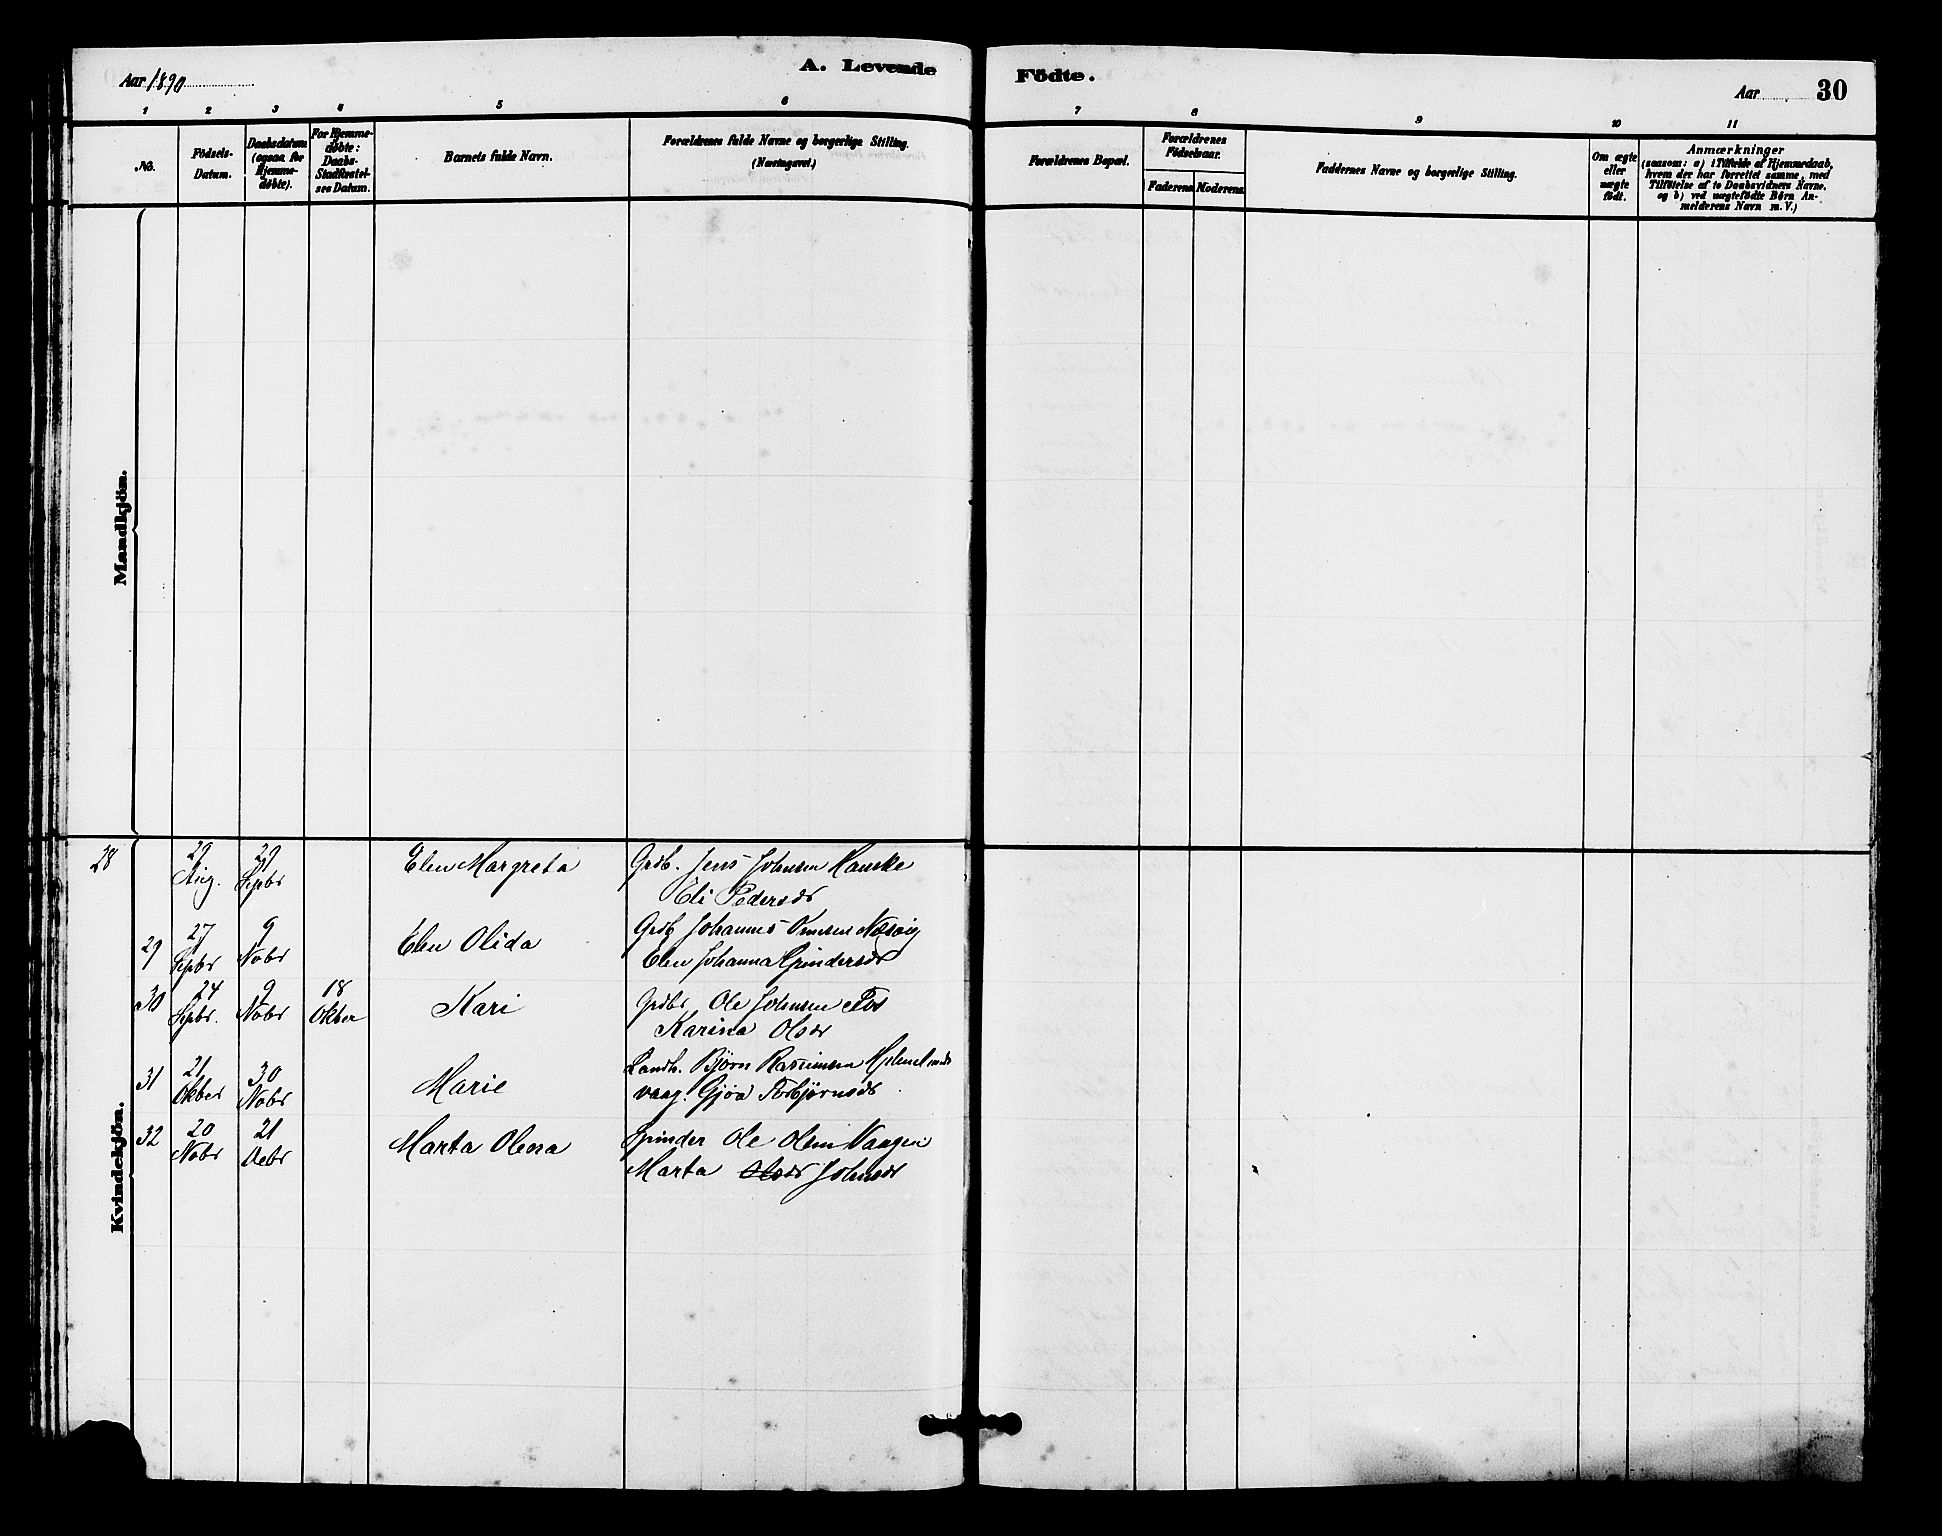 Aar 1890
A. Levende
Födte.
Aar 30
1 2 3 4 5 6 7 8 9 10 11
No.
Födsels-
Datum.
Daabsdatum
(ogsaa for
Hjemme-
døbte).
For Hjemme-
døbte:
Daabs-
Stadfæstel-
ses Datum.
Barnets fulde Navn.
Forældrenes fulde Navne og borgerlige Stilling.
(Næringsvei.)
Forældrenes Bopæl.
Forældrenes
Födselsaar.
Faderens Moderens
Faddernes Navne og borgerlige Stilling.
Om ægte
eller
uægte
født.
Anmærkninger
(saasom: a) i Tilfælde af Hjemmedaab,
hvem der har forrettet samme, med
Tilföielse af to Daabsvidners Navne,
og b) ved uægtefødte Børn An-
melderens Navn m. V.)
Mandkjön.
Kvindekjön.
28 29 Aug. 29 Sepbr Elen Margreta Grdb. Jens Johnsen Hauske
Eli Pedersdr
29 27 Sepbr 9 Nobr Elen Olida Johannes Næsvig
Elen Johanna
30 24 Sepbr. 9 Nobr 18 Oktber Kari Grdbr. Ole Johnsen Fos
Karina Olsdr
31 21 Oktber 30 Nobr Marie Landh. Bjørn Rasmusen
vaag. Gjøa Torbjørnsdr
32 20 Nobr 21 Debr Marta Oleva Ole Olsen Vaagen
Marta Olsdr Johnsdr